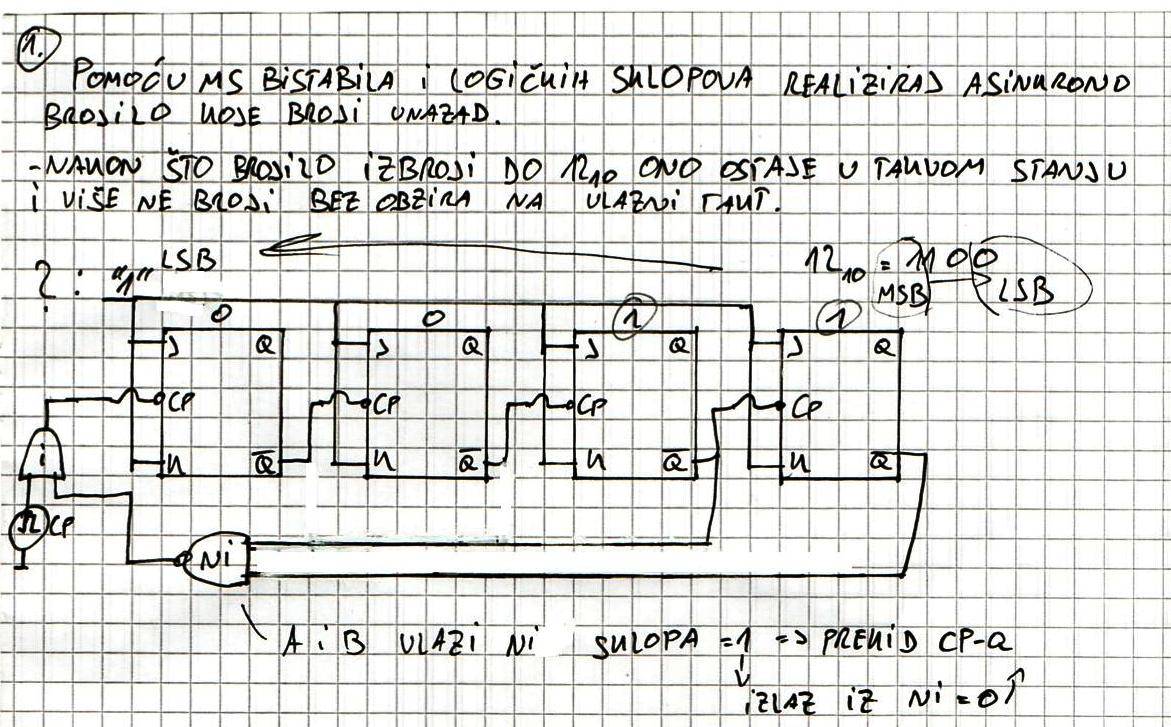 1.
POMOĆU MS BISTABILA I LOGIČKIH SKLOPOVA REALIZIRAJ ASINKRONO
BROJILO KOJE BROJI UNAZAD.
-NAKON ŠTO BROJILO IZBROJI DO 12₁₀ ONO OSTAJE U TAKVOM STANJU
I VIŠE NE BROJI BEZ OBZIRA NA ULAZNI TAKT.
?: "1" LSB
12₁₀ = 1100
MSB LSB
0 0 1 1
J Q J Q J Q J Q
CP CP CP CP
K Q̅ K Q̅ K Q̅ K Q̅
i
CP
Ni
A i B ULAZI Ni SKLOPA = 1 => PREKID CP-a
IZLAZ IZ Ni = 0